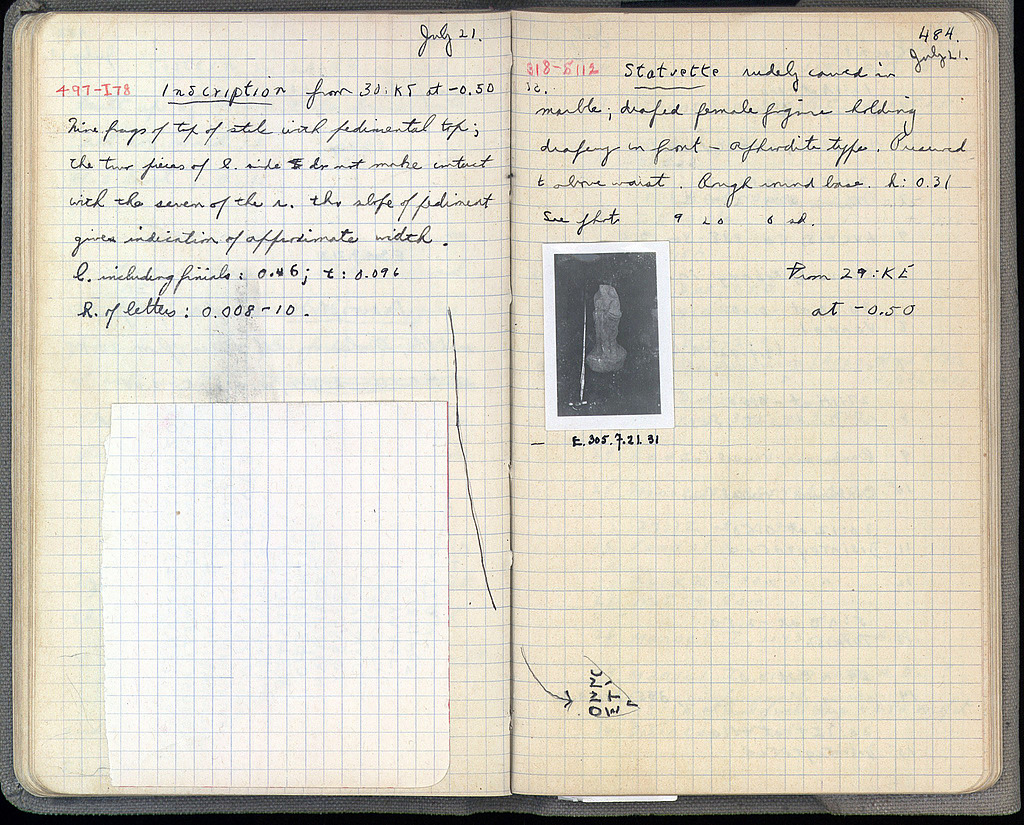 July 21.
497-I78 Inscription from 30:ΚΣΤ at -0.50
Nine frags of top of stele with pedimental top;
the two pieces of l. side do not make contact
with the seven of the r. tho slope of pediment
gives indication of approximate width.
l. including finials: 0.46; t: 0.096
h. of letters: 0.008-10.
484.
July 21.
318-S112 Statuette rudely carved in
marble; draped female figure holding
drapery in front - Aphrodite type. Preserved
to above waist. Rough round base. h: 0.31
See photo
From 29:ΚΕ
at -0.50
E.305.7.21.31